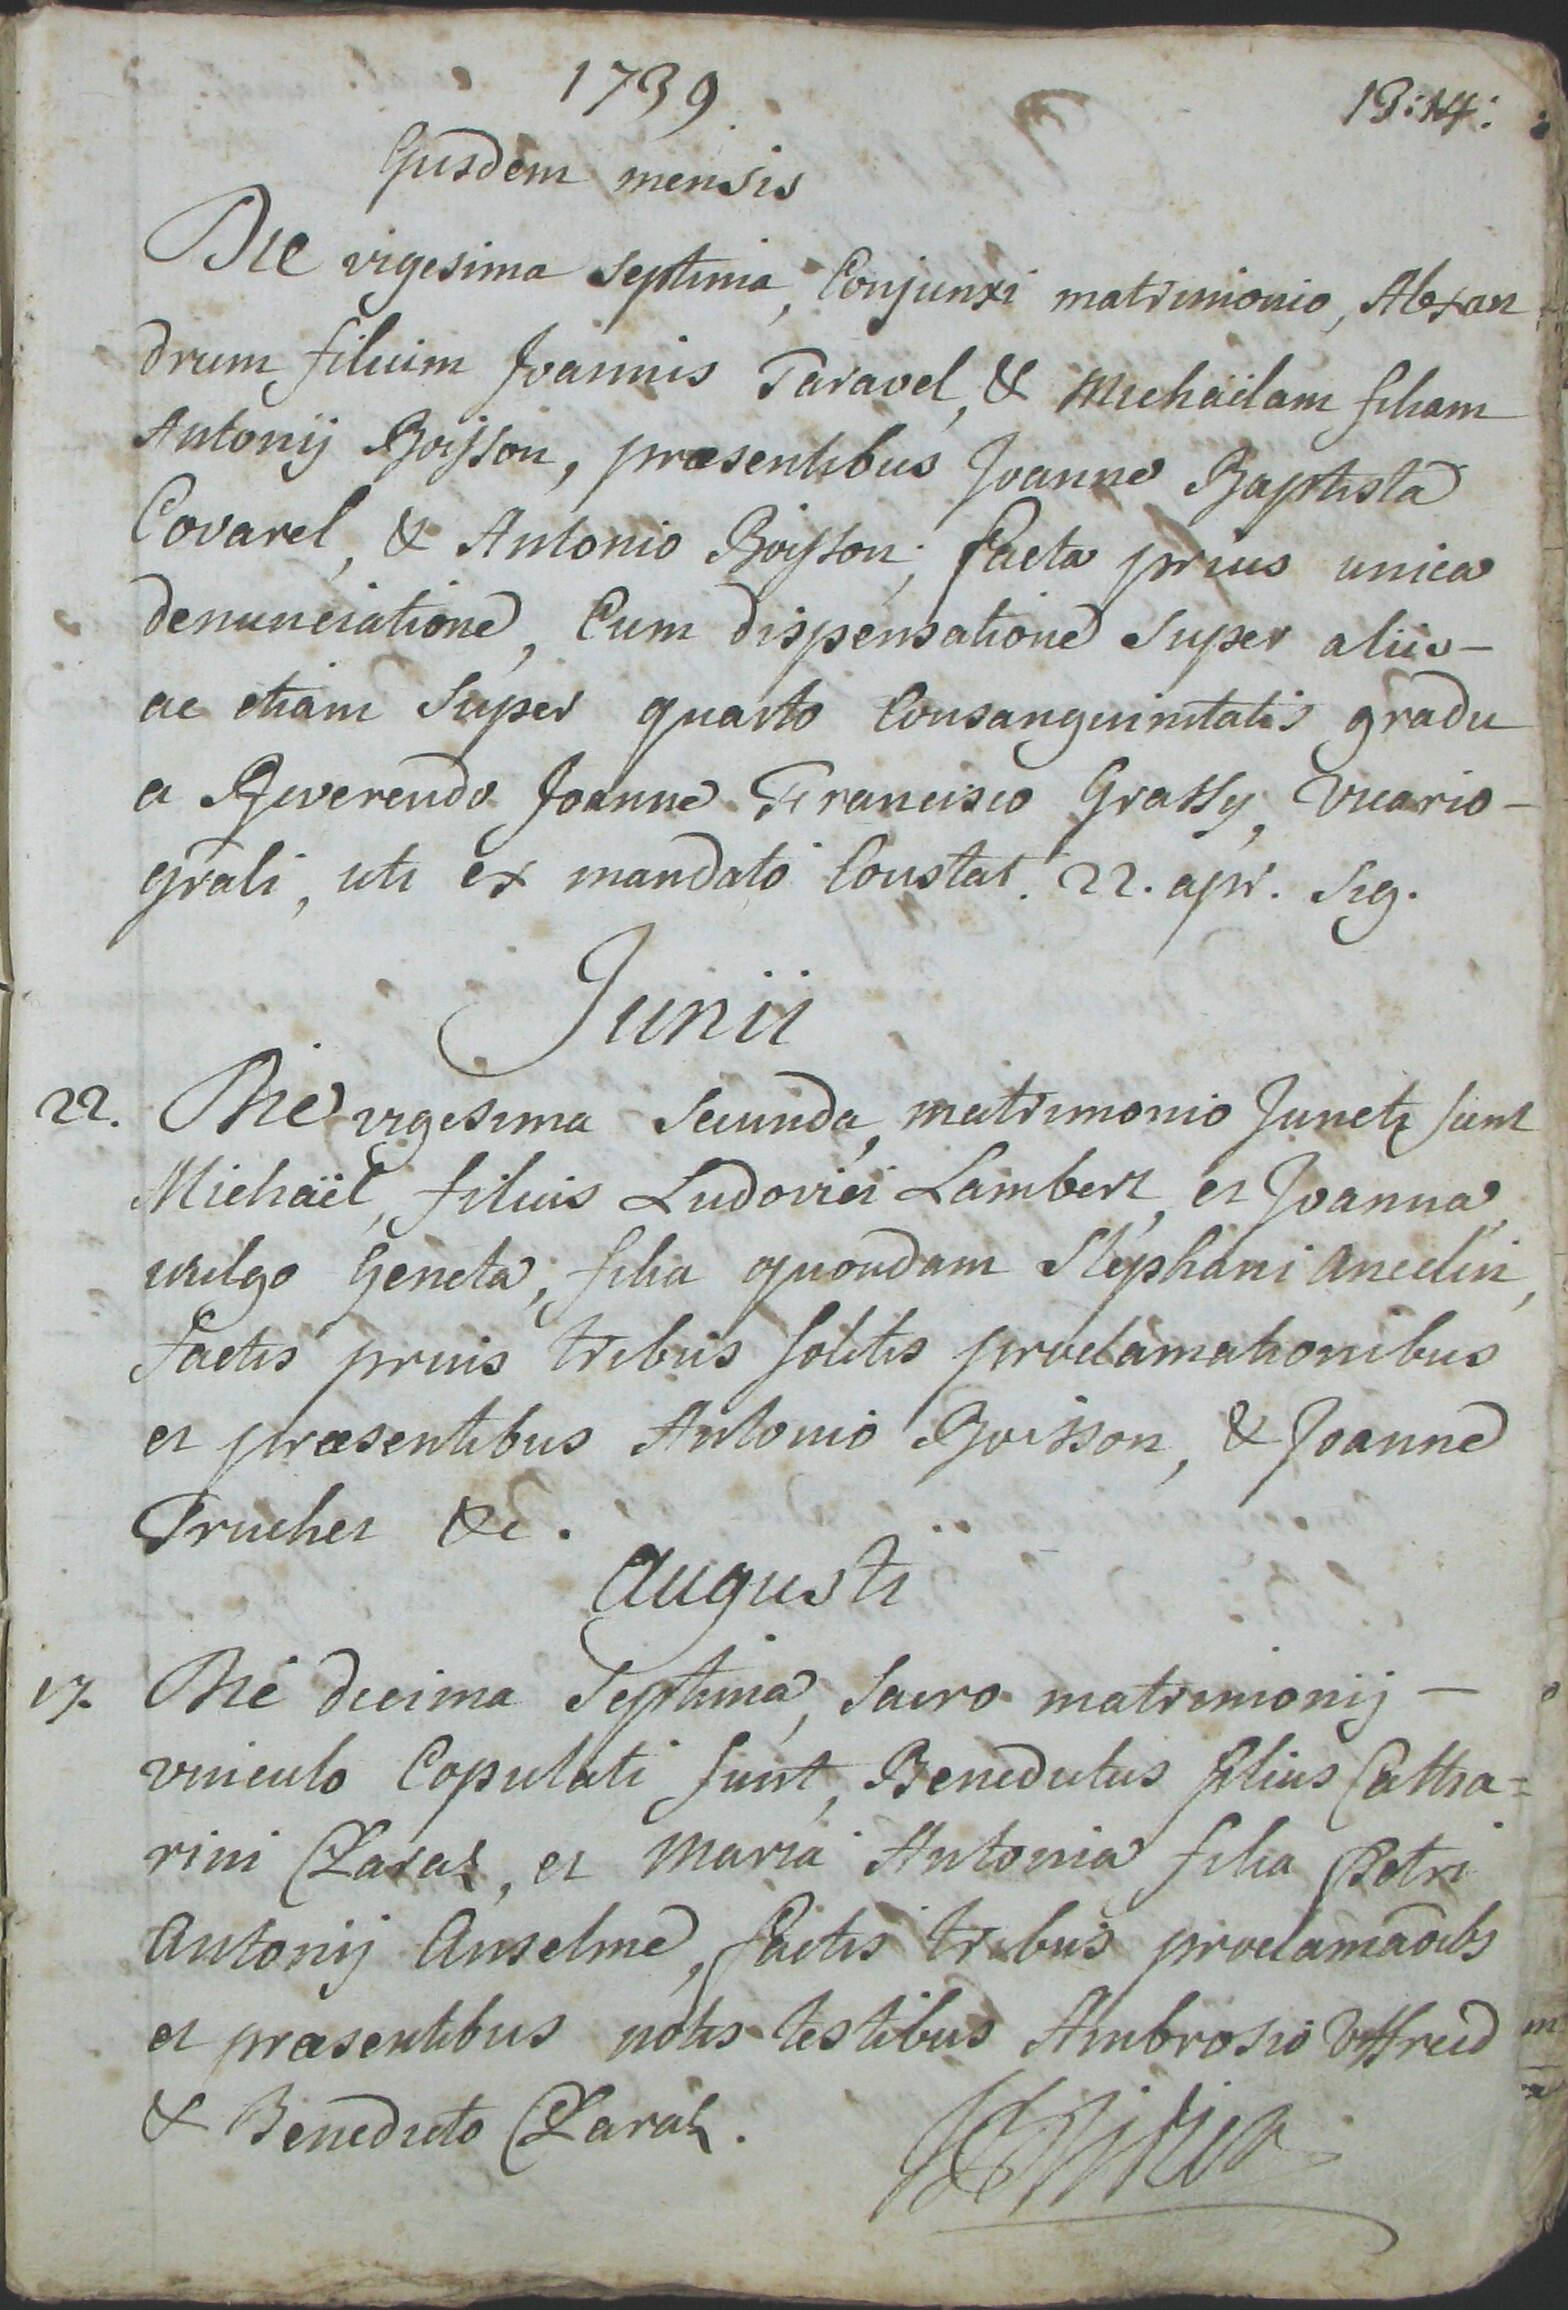 1739
13:14:
Ejusdem mensis
Die vigesima septima, Conjunxi matrimonio, Alexan
drum filium Joannis Taravel, & Michaëlam filiam
Antonij Boisson, præsentibus Joanne Baptista
Covarel, & Antonio Boisson; facta prius unica
denunciatione, Cum dispensatione super aliis-
ac etiam super quarto Consanguinitatis gradu
a Reverendo Joanne Francisco Grassy, Vicario-
grāli, uti ex mandato Constat. 22. apr. sig.
Junii
22. Die vigesima secunda, matrimonio Juncti sunt
Michaël, filius Ludovici Lambert, et Joanna,
vulgo Geneta, filia quondam Stephani Ancelin,
factis prius tribus solitis proclamationibus
et præsentibus Antonio Boisson, & Joanne
Truchet &c.
Augusti
17. Die decima septima, sacro matrimonij -
vinculo Copulati sunt, Benedictus filius Catha=
rini Claraz, et Maria Antonia filia Petri
Antonij Anselme, factis tribus proclamaōibs
et præsentibus notis testibus Ambrosio Uffred
& Benedicto Claraz.